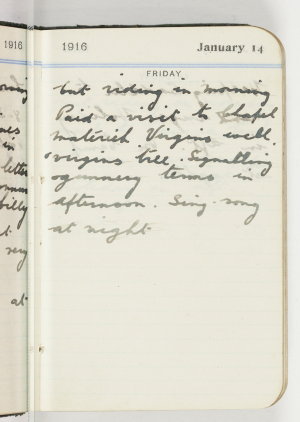 1916
1916 January 14
FRIDAY
but riding in morning
Paid a visit to Chapel
materieh Virgins well.
virgins tree. Signalling
gunnery terms in
afternoon. Sing song
at night
letter
very
at